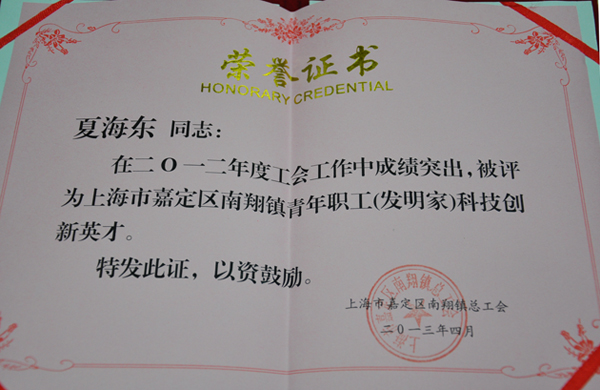 荣誉证书
HONORARY CREDENTIAL
夏海东 同志：
在二〇一二年度工会工作中成绩突出，被评
为上海市嘉定区南翔镇青年职工(发明家)科技创
新英才。
特发此证，以资鼓励。
上海市嘉定区南翔镇总工会
二〇一三年四月